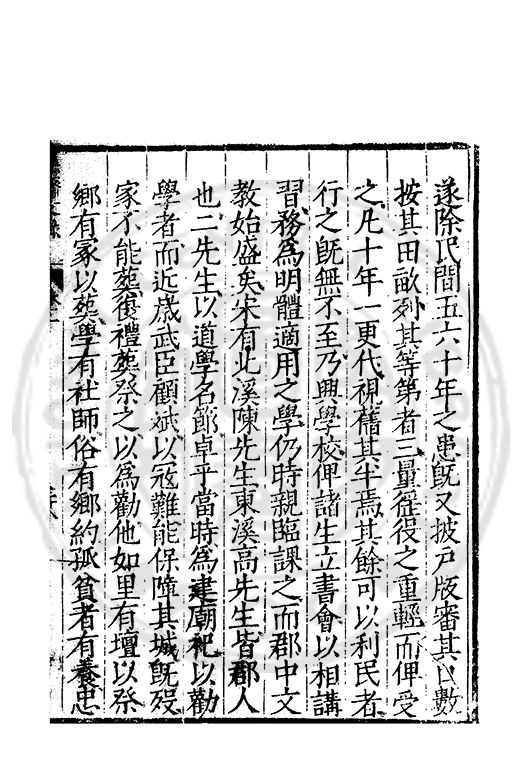 遂除民間五六十年之患旣又披戶版審其口數
按其田畝列其等第者三量徭役之重輕而俾受
之凡十年一更代視舊其半焉其餘可以利民者
行之旣無不至乃興學校俾諸生立書會以相講
習務爲明體適用之學仍時親臨課之而郡中文
教始盛矣宋有北溪陳先生東溪高先生皆郡人
也二先生以道學名節卓乎當時爲建廟祀以勸
學者而近歲武臣顧斌以寇難能保障其城旣歿
家不能葬復禮葬祭之以爲勸他如里有壇以祭
鄉有冢以葬學有社師俗有鄉約孤貧者有養忠